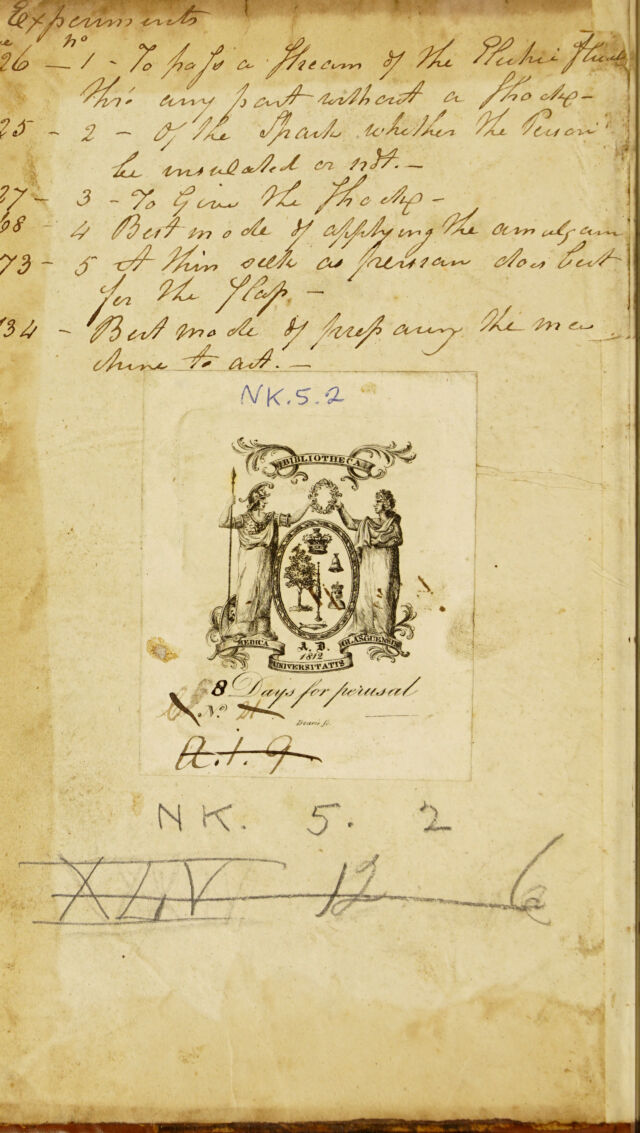 Experiments
no
26 - 1 - To pass a Stream of the Electric fluid
thro' any part without a Shock -
25 - 2 - Of the Spark whether the Person
be insulated or not. -
27 - 3 - To Give the Shock -
68 - 4 Best mode of applying the amalgam
73 - 5 A thin silk as persian does best
for the flap -
134 - Best mode of preparing the ma
chine to act. -
NK.5.2
BIBLIOTHECA
MEDICA
A.D.
1812
GLASGUENSIS
UNIVERSITATIS
8 Days for perusal
No. 21
a.1.9
NK. 5. 2
XLIV 12 6